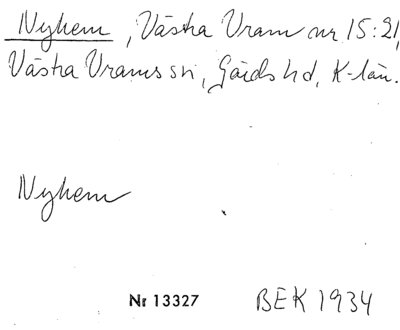 Nyhem, Västra Vram nr 15:21,
Västra Vrams sn, Gärds hd, K-län.
Nyhem
Nr 13327
BEK 1934